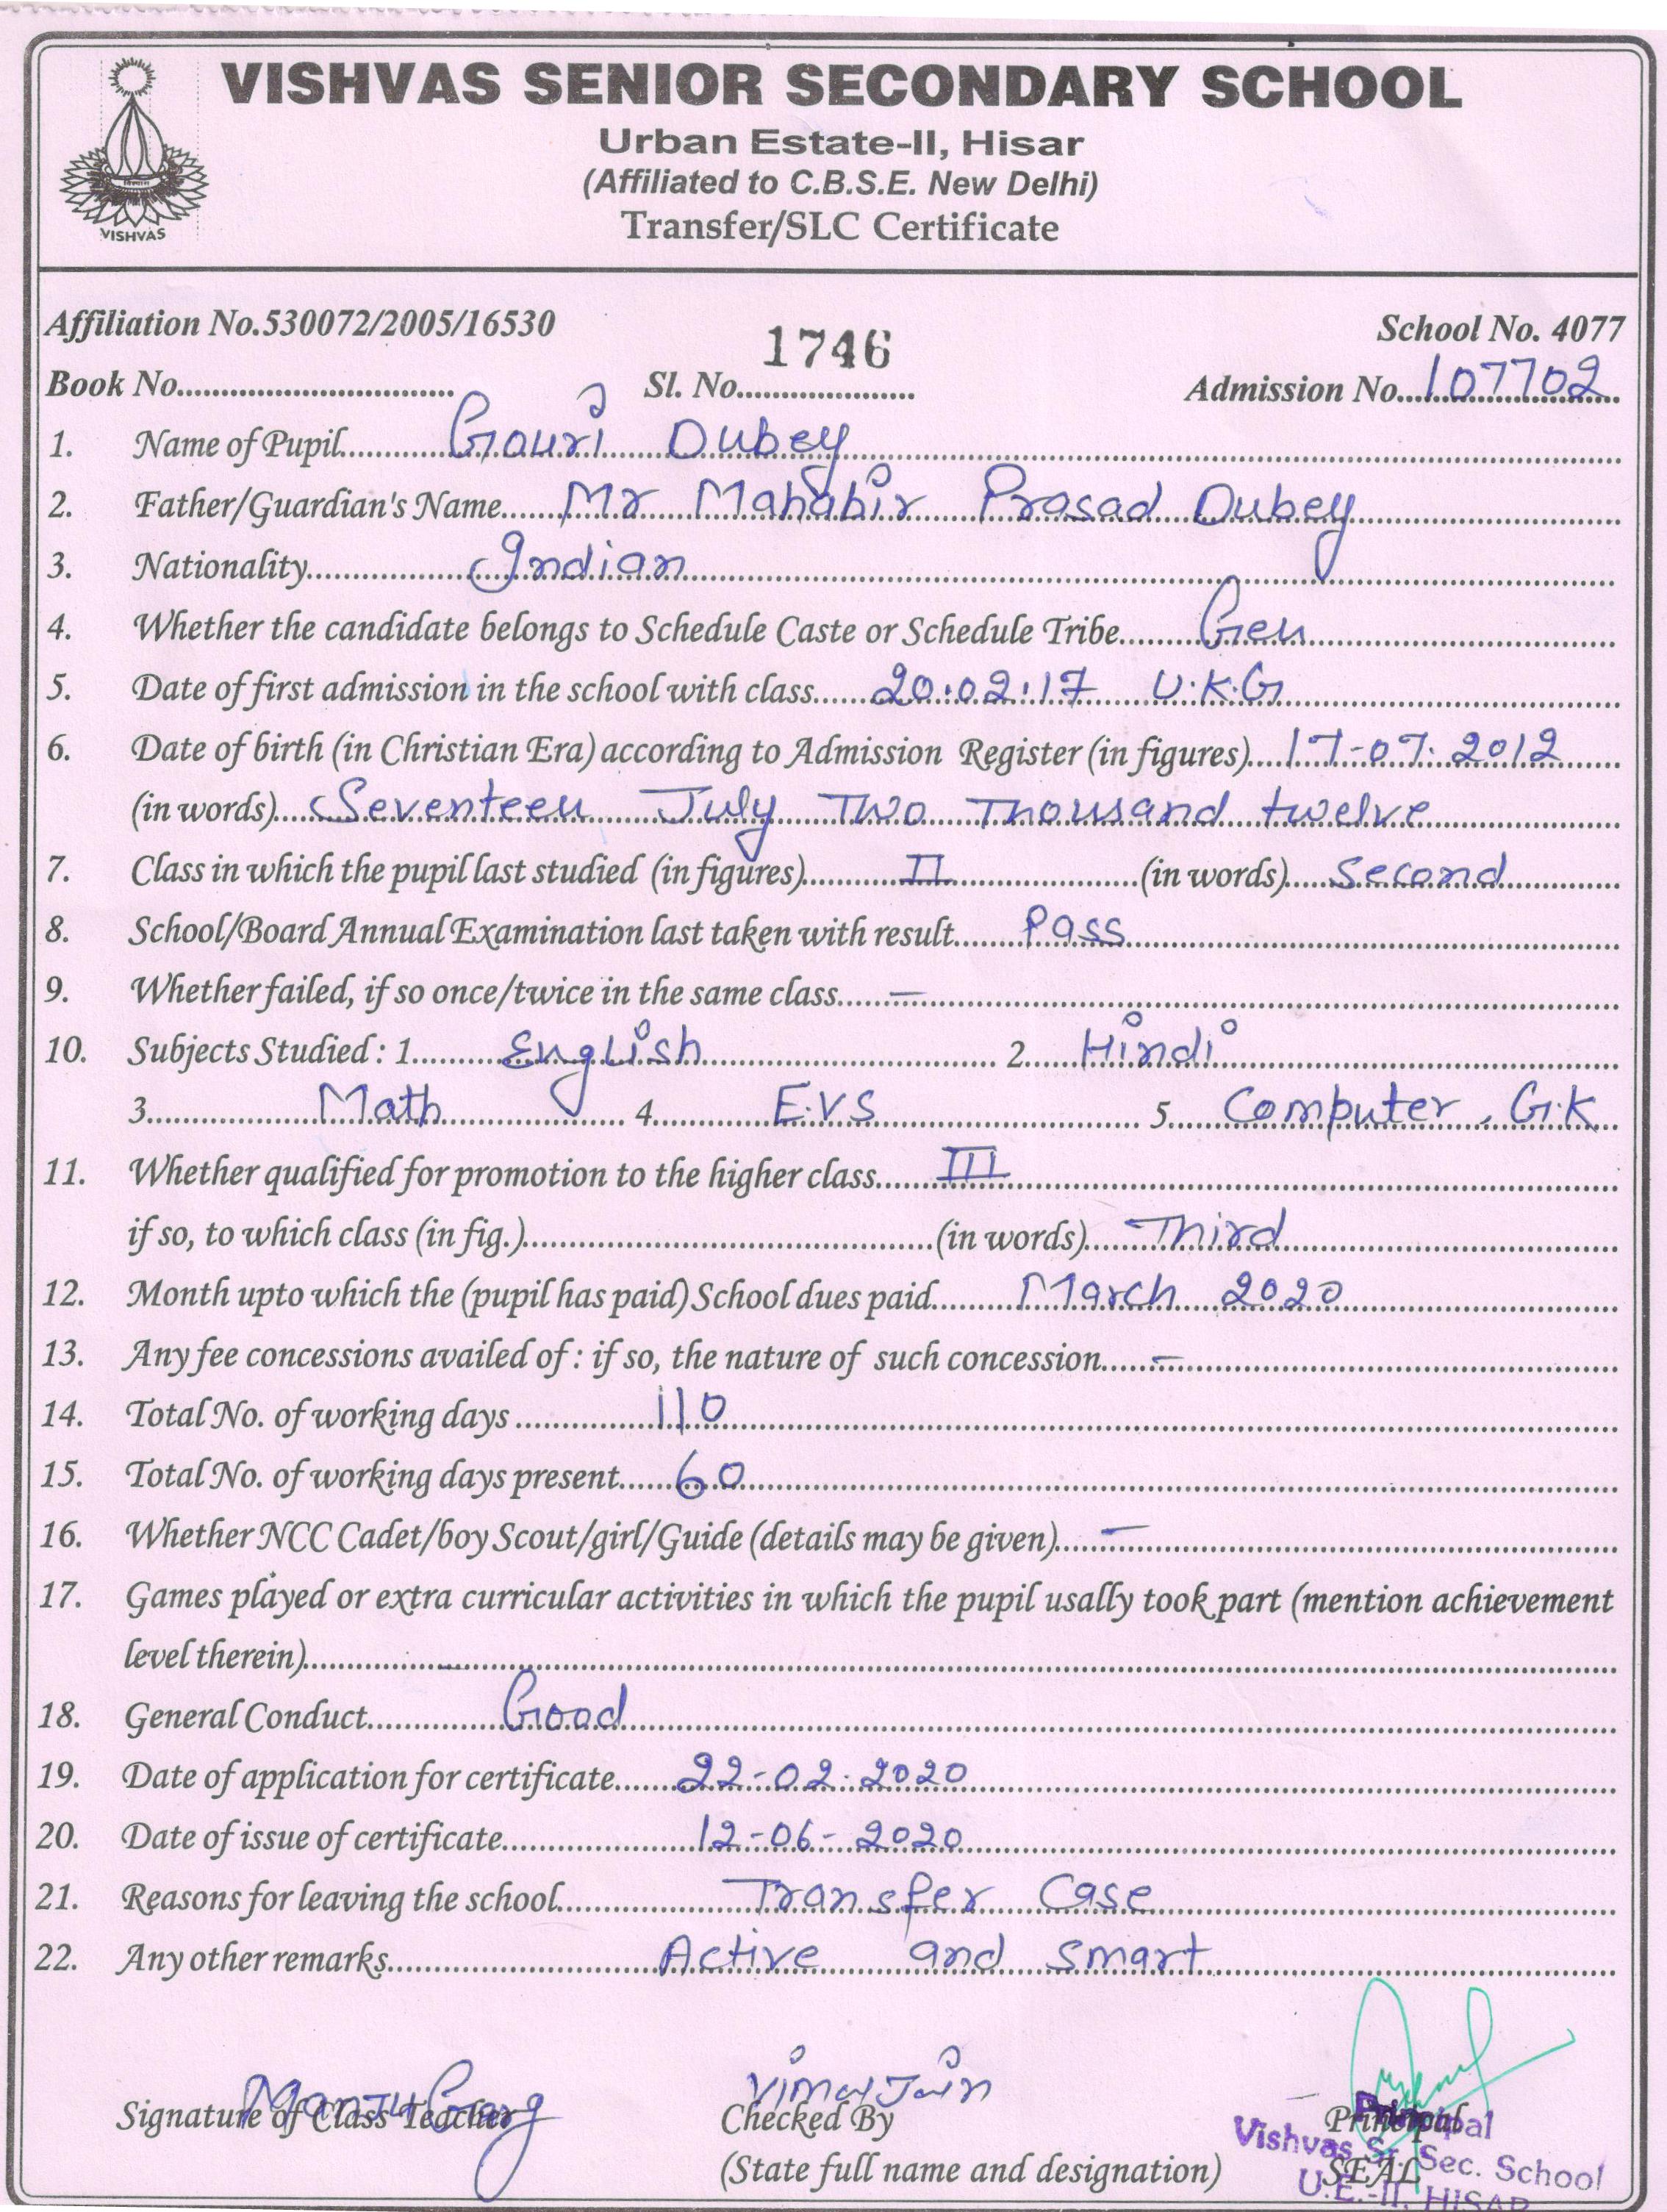 VISHVAS SENIOR SECONDARY SCHOOL
Urban Estate-II, Hisar
(Affiliated to C.B.S.E. New Delhi)
Transfer/SLC Certificate
विश्वास
VISHVAS
Affiliation No.530072/2005/16530 School No. 4077
Book No. Sl. No. 1746 Admission No. 107702
1. Name of Pupil Gouri Dubey
2. Father/Guardian's Name Mr Mahabir Prasad Dubey
3. Nationality Indian
4. Whether the candidate belongs to Schedule Caste or Schedule Tribe Gen
5. Date of first admission in the school with class 20.02.17 U.K.G
6. Date of birth (in Christian Era) according to Admission Register (in figures) 17-07-2012
(in words) Seventeen July Two Thousand twelve
7. Class in which the pupil last studied (in figures) II (in words) Second
8. School/Board Annual Examination last taken with result Pass
9. Whether failed, if so once/twice in the same class —
10. Subjects Studied : 1. English 2. Hindi
3. Math 4. E.V.S 5. Computer, G.K
11. Whether qualified for promotion to the higher class III
if so, to which class (in fig.) (in words) Third
12. Month upto which the (pupil has paid) School dues paid March 2020
13. Any fee concessions availed of : if so, the nature of such concession —
14. Total No. of working days 110
15. Total No. of working days present 60
16. Whether NCC Cadet/boy Scout/girl/Guide (details may be given) —
17. Games played or extra curricular activities in which the pupil usally took part (mention achievement
level therein) —
18. General Conduct Good
19. Date of application for certificate 22-02-2020
20. Date of issue of certificate 12-06-2020
21. Reasons for leaving the school Transfer Case
22. Any other remarks Active and smart
Manju Garg Vimal Jain
Signature of Class Teacher Checked By Principal
(State full name and designation) SEAL
Principal
Vishvas Sr. Sec. School
U.E.-II, HISAR